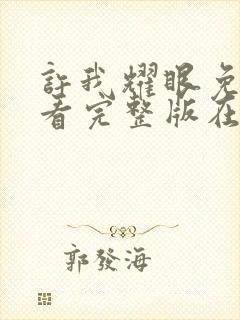 許我耀眼免
看完整版在
郭發海